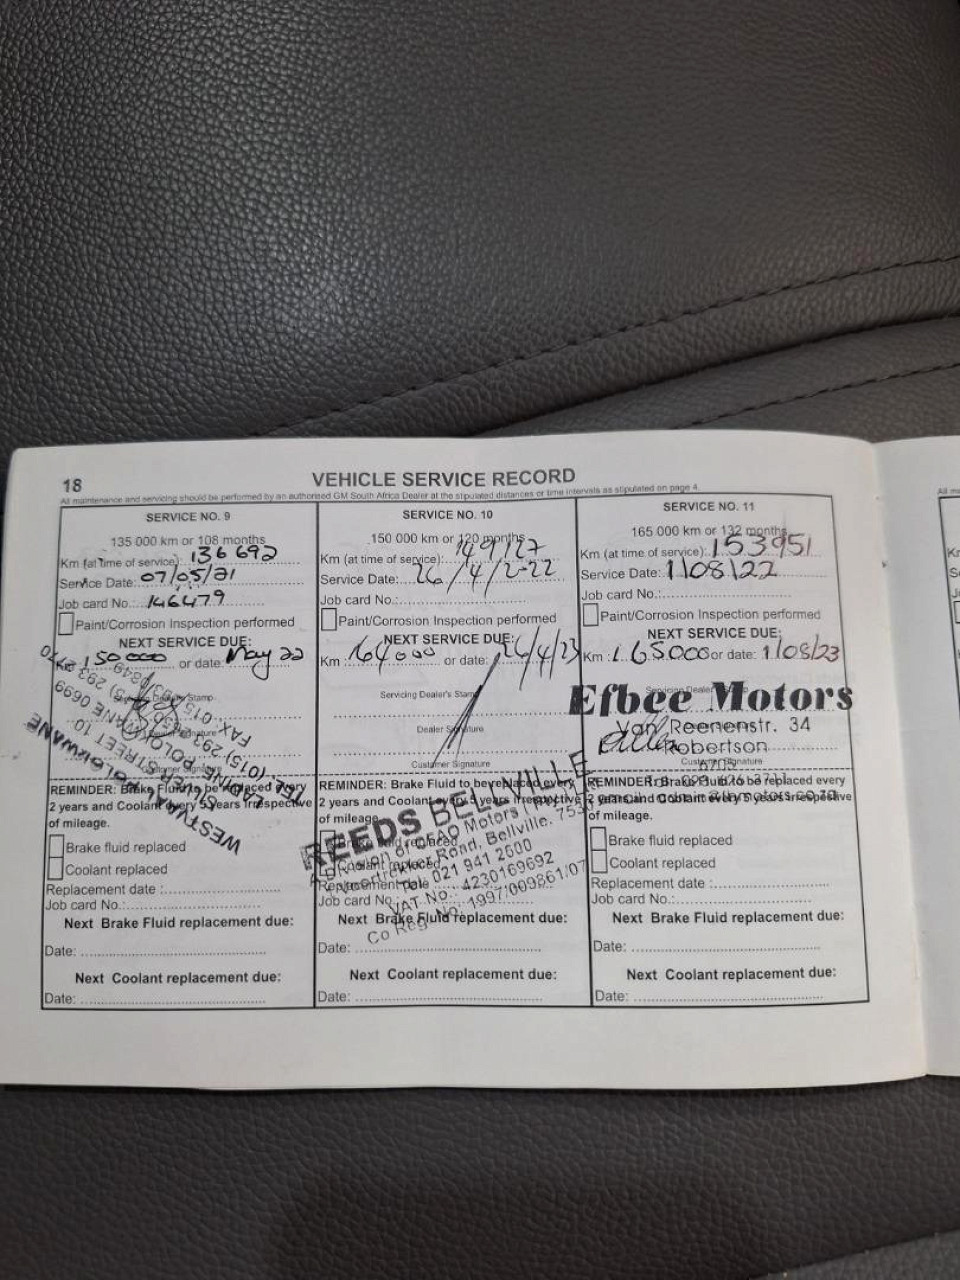 18
VEHICLE SERVICE RECORD
All maintenance and servicing should be performed by an authorised GM South Africa Dealer at the stipulated distances or time intervals as stipulated on page 4.
SERVICE NO. 9
135 000 km or 108 months
Km (at time of service): 136 692
Service Date: 07/05/21
Job card No.: 146479
Paint/Corrosion Inspection performed
NEXT SERVICE DUE:
Km: 150 000 or date: May 22
WESTVAAL POLOKWANE
REMINDER: Brake Fluid to be replaced every
2 years and Coolant every 5 years irrespective
of mileage.
Brake fluid replaced
Coolant replaced
Replacement date :
Job card No.:
Next Brake Fluid replacement due:
Date:
Next Coolant replacement due:
Date:
SERVICE NO. 10
150 000 km or 120 months
Km (at time of service): 149127
Service Date: 26/4/2022
Job card No.:
Paint/Corrosion Inspection performed
NEXT SERVICE DUE:
Km : 164000 or date: 26/4/23
Servicing Dealer's Stamp
Dealer Signature
Customer Signature
REMINDER: Brake Fluid to be replaced every
2 years and Coolant every 5 years irrespective
of mileage.
REEDS BELLVILLE
Motors
Road, Bellville. 7530
Tel: 021 941 2600
VAT No.: 4230169692
Co Reg. No: 1997/009861/07
Next Brake Fluid replacement due:
Date:
Next Coolant replacement due:
Date:
SERVICE NO. 11
165 000 km or 132 months
Km (at time of service): 153951
Service Date: 1/08/22
Job card No.:
Paint/Corrosion Inspection performed
NEXT SERVICE DUE:
Km : 165000 or date: 1/08/23
Efbee Motors
Van Reenenstr. 34
Robertson
6705
Customer Signature
REMINDER: Brake Fluid to be replaced every
2 years and Coolant every 5 years irrespective
of mileage.
Brake fluid replaced
Coolant replaced
Replacement date :
Job card No.:
Next Brake Fluid replacement due:
Date:
Next Coolant replacement due:
Date: